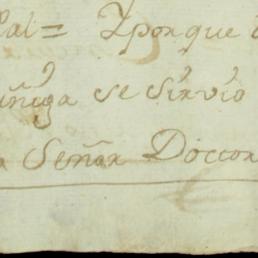 al= Y porque
uñiga se sirvio
Señor Doctor